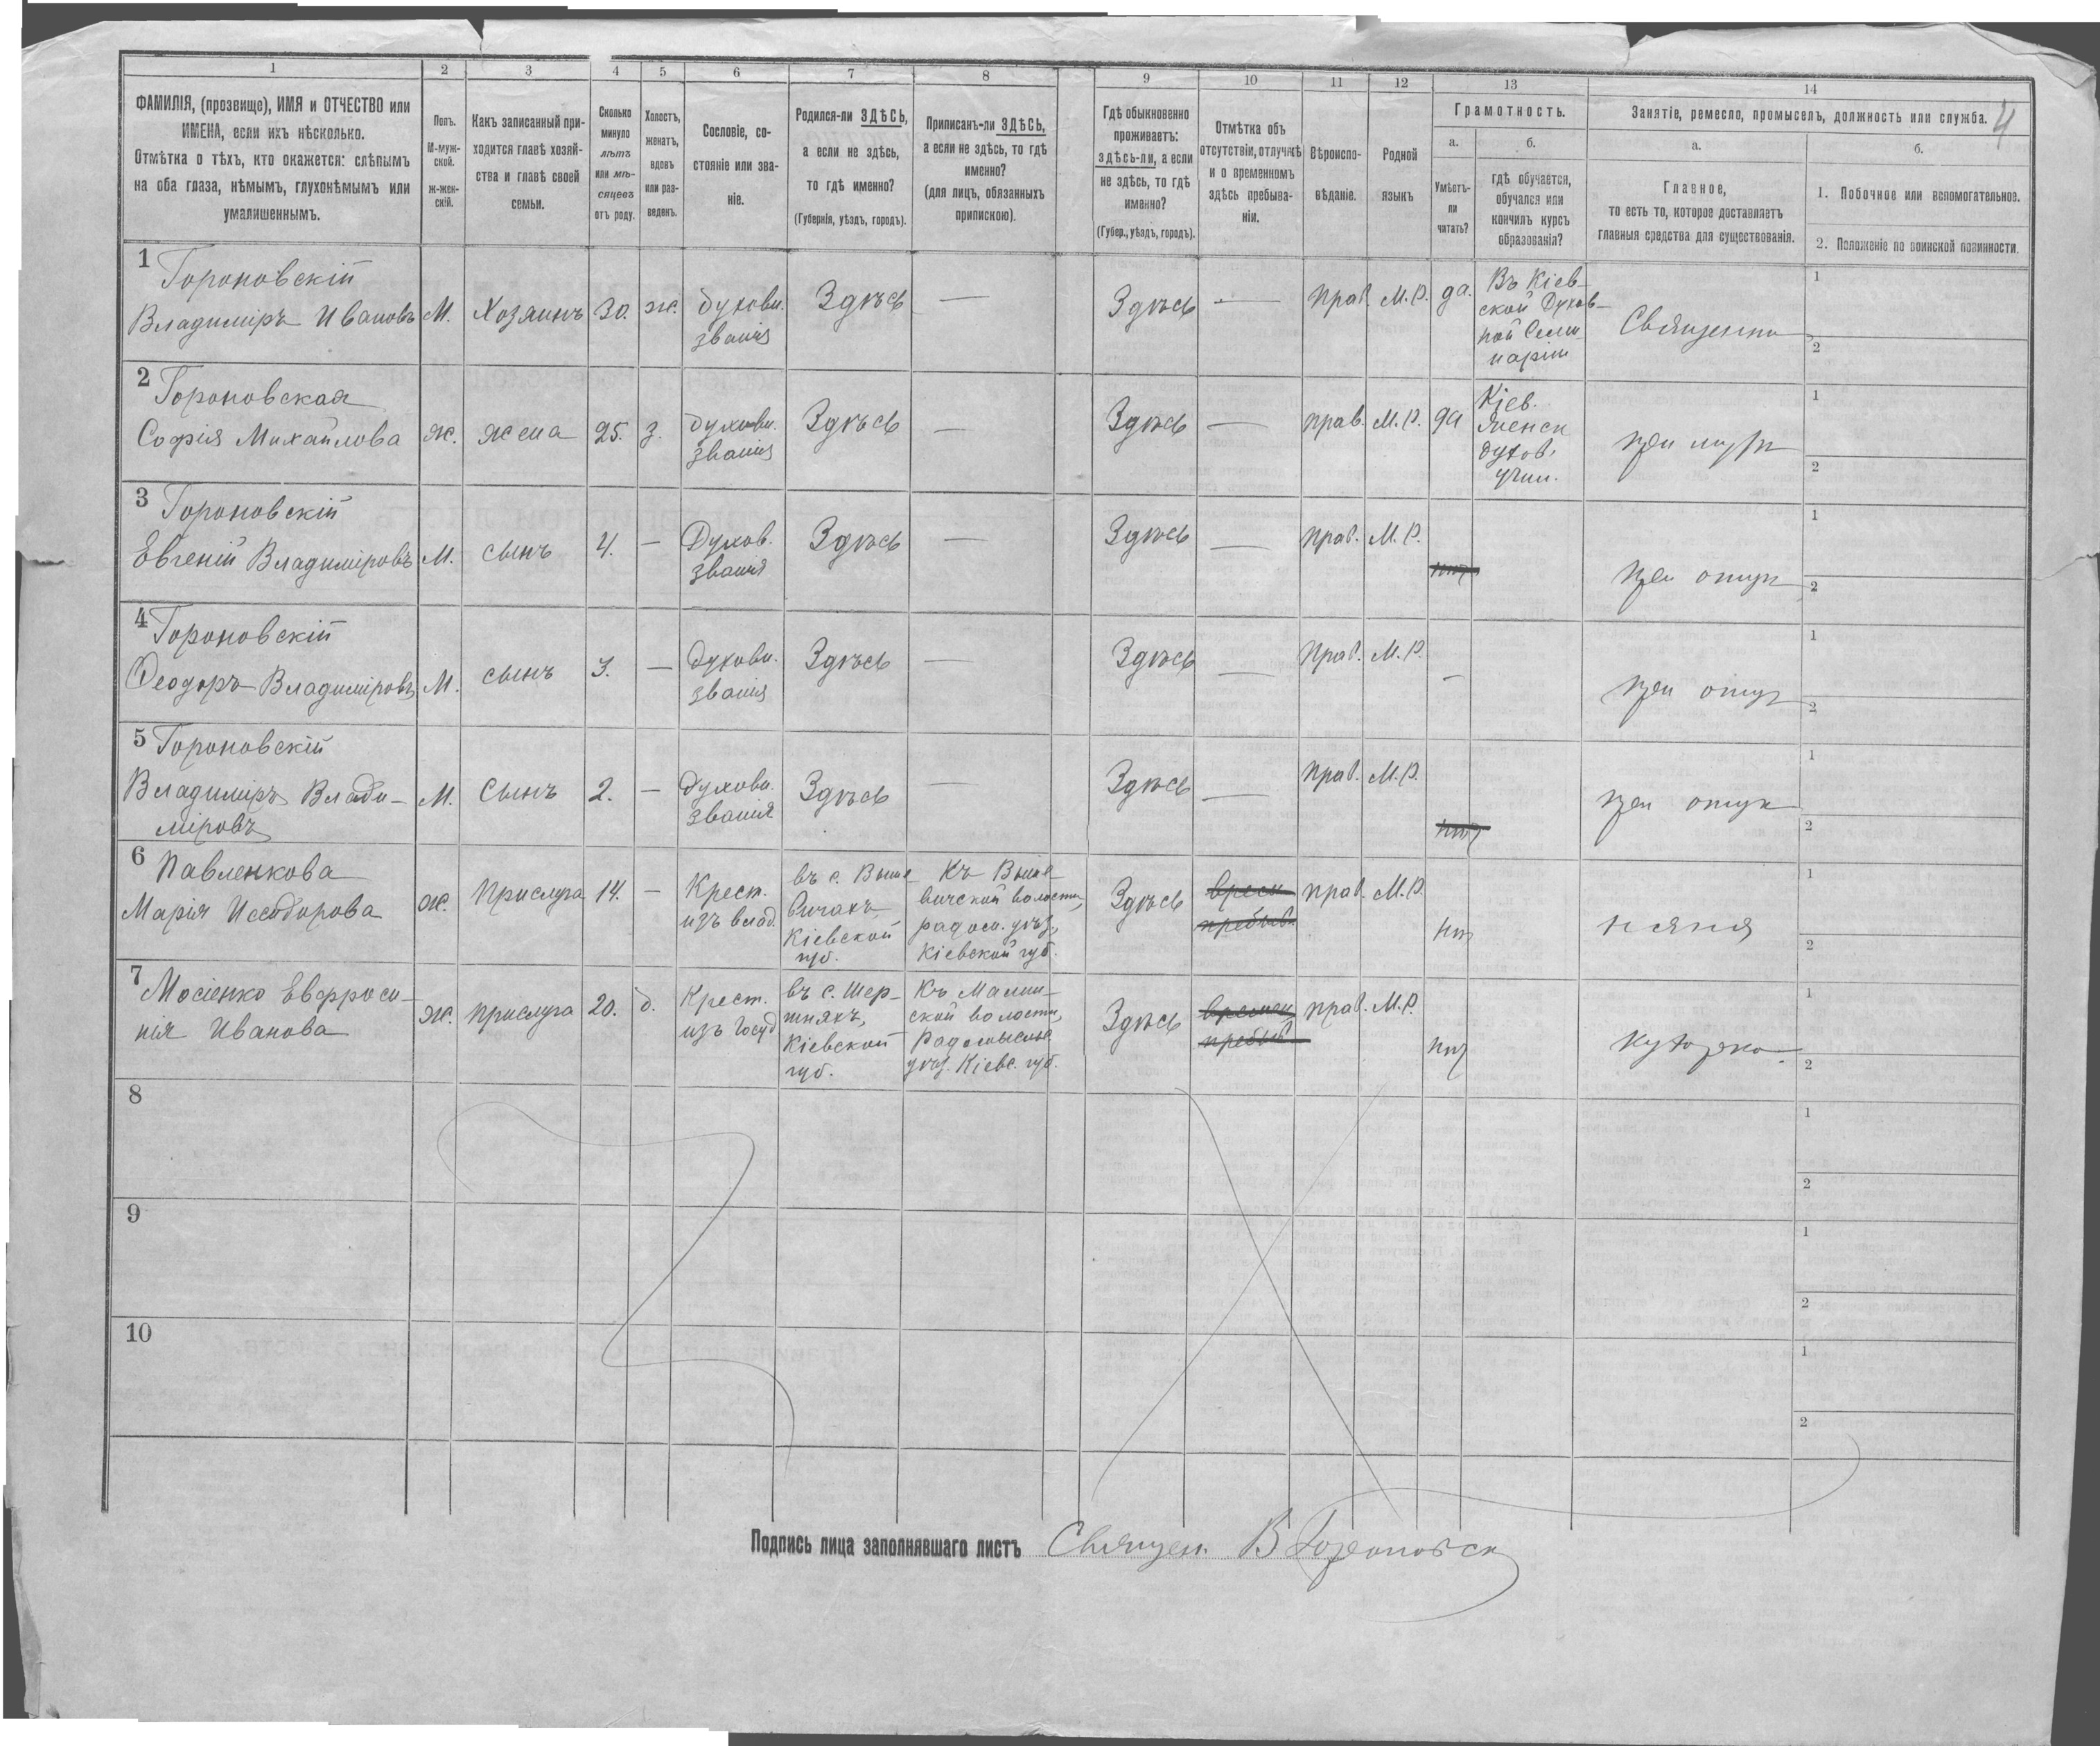 1 2 3 4 5 6 7 8 9 10 11 12 13 14
ФАМИЛІЯ, (прозвище), ИМЯ и ОТЧЕСТВО или
ИМЕНА, если ихъ нѣсколько.
Отмѣтка о тѣхъ, кто окажется: слѣпымъ
на оба глаза, нѣмымъ, глухонѣмымъ или
умалишеннымъ.
Полъ.
М-муж-
ской.
Ж-жен-
скій.
Какъ записанный при-
ходится главѣ хозяй-
ства и главѣ своей
семьи.
Сколько
минуло
лѣтъ
или мѣ-
сяцевъ
отъ роду.
Холостъ,
женатъ,
вдовъ
или раз-
веденъ.
Сословіе, со-
стояніе или зва-
ніе.
Родился-ли ЗДѢСЬ,
а если не здѣсь,
то гдѣ именно?
(Губернія, уѣздъ, городъ).
Приписанъ-ли ЗДѢСЬ,
а если не здѣсь, то гдѣ
именно?
(для лицъ, обязанныхъ
припискою).
Гдѣ обыкновенно
проживаетъ:
здѣсь-ли, а если
не здѣсь, то гдѣ
именно?
(Губер., уѣздъ, городъ).
Отмѣтка объ
отсутствіи, отлучкѣ
и о временномъ
здѣсь пребыва-
ніи.
Вѣроиспо-
вѣданіе.
Родной
языкъ
Грамотность.
а.
Умѣетъ-
ли
читать?
б.
гдѣ обучается,
обучался или
кончилъ курсъ
образованія?
Занятіе, ремесло, промыселъ, должность или служба.
4
а.
Главное,
то есть то, которое доставляетъ
главныя средства для существованія.
б.
1. Побочное или вспомогательное.
2. Положеніе по воинской повинности.
1
Гороновскій
Владиміръ Ивановъ
М.
Хозяинъ
30.
ж.
духовн.
званія
Здѣсь
—
Здѣсь
—
прав.
М.Р.
да.
Въ Кіев-
ской Духов-
ной Семи
наріи
1
2
2
Гороновская
Софія Михайлова
ж.
жена
25.
з.
духовн.
званія
Здѣсь
—
Здѣсь
—
прав.
М.Р.
да
Кіев.
Женск
духов.
учил.
при
1
2
3
Гороновскій
Евгеній Владиміровъ
М.
сынъ
4.
—
Духов.
званія
Здѣсь
—
Здѣсь
—
прав.
М.Р.
при
1
2
4
Гороновскій
Ѳеодоръ Владиміровъ
М.
сынъ
3.
—
духовн.
званія
Здѣсь
—
Здѣсь
—
прав.
М.Р.
-
при
1
2
5
Гороновскій
Владиміръ Влади-
міровъ
М.
Сынъ
2.
—
духовн.
званія
Здѣсь
—
Здѣсь
—
прав.
М.Р.
при
1
2
6
Павленкова
Марія Исидорова
ж.
Прислуга
14.
—
Крест.
изъ влад.
въ с. Выше
вичахъ,
Кіевской
губ.
Къ Выше-
вичской волости,
радом. уѣз,
Кіевской губ.
Здѣсь
врем
пребыв.
прав.
М.Р.
няня
1
2
7
Мосіенко Евфроси-
нія Иванова
ж.
прислуга
20.
д.
Крест.
изъ госуд
въ с. Шер-
шняхъ,
Кіевской
губ.
Къ Малин-
ской волости,
Радомысльс
уѣз. Кіевс. губ.
Здѣсь
времен.
пребыв
прав.
М.Р.
1
2
8
1
2
9
1
2
10
1
2
Подпись лица заполнявшаго листъ Священ. В Гороновск